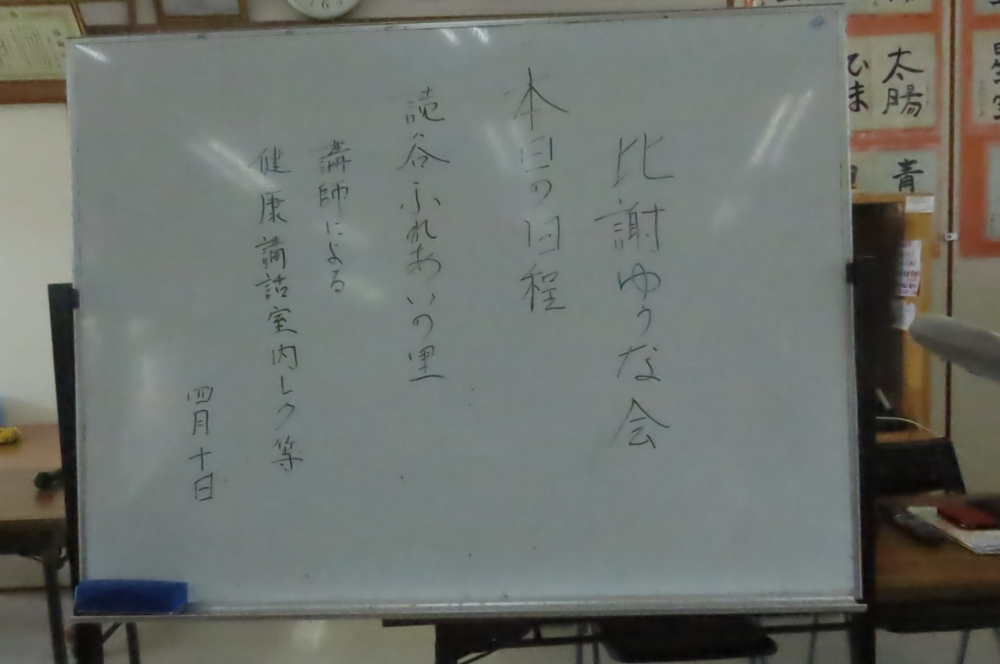 比謝ゆうな会
本日の日程
読谷ふれあいの里
講師による
健康講話室内レク等
四月十日
太陽
ひま
青